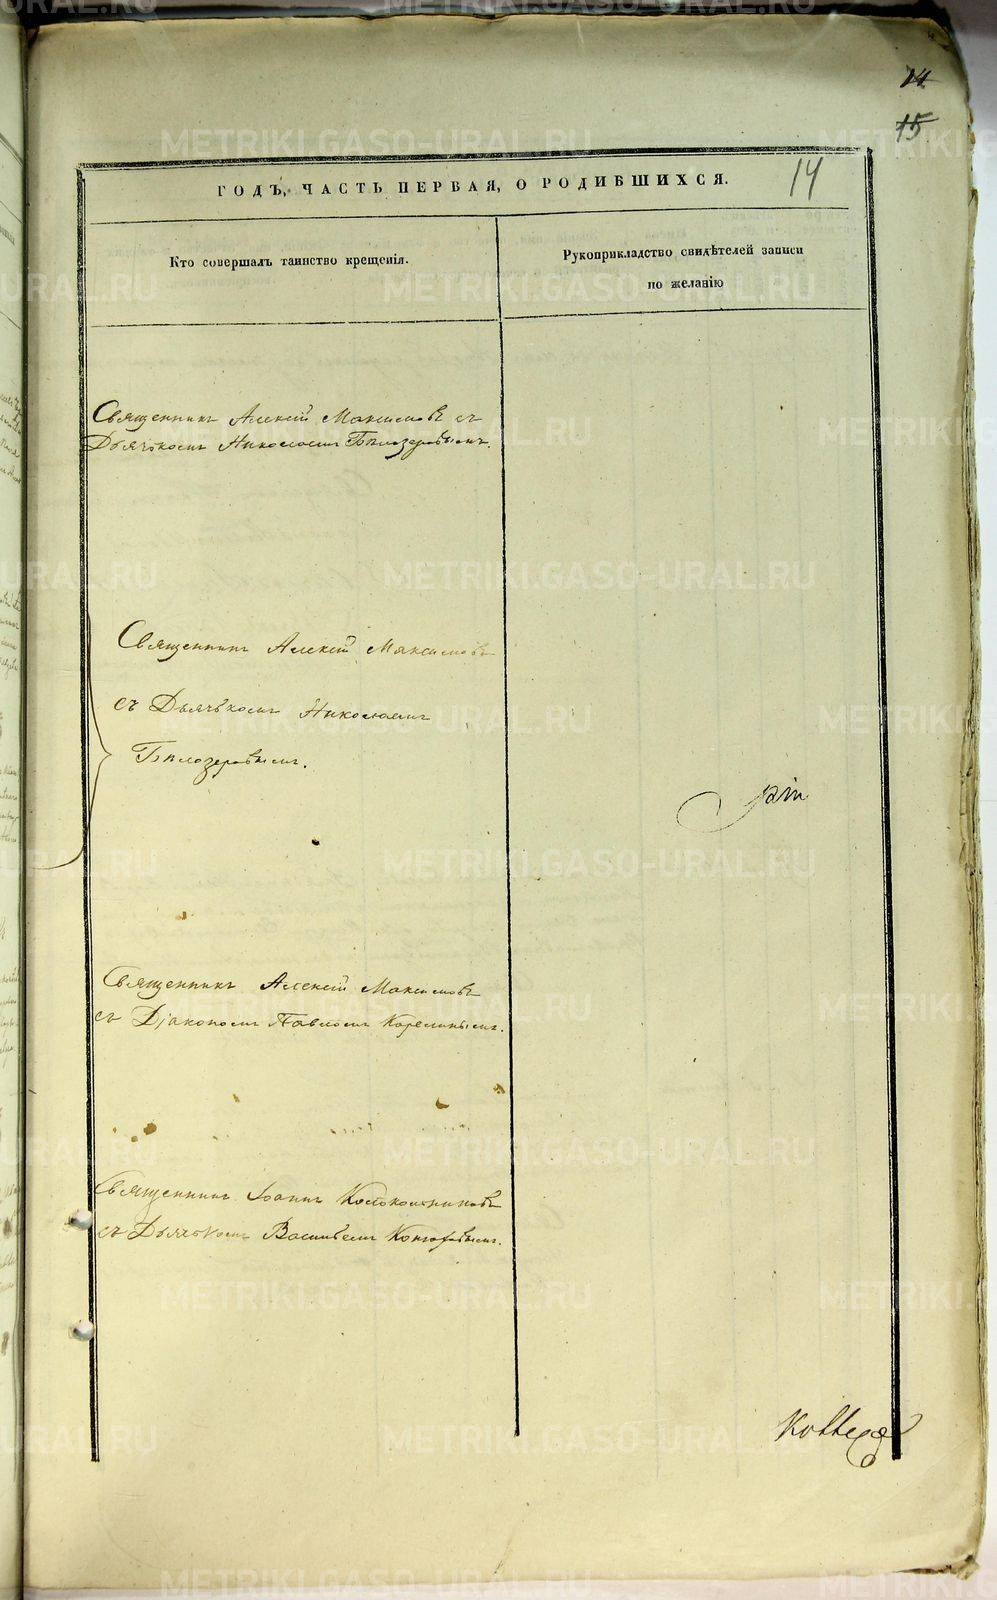 14
15
14
ГОДЪ, ЧАСТЬ ПЕРВАЯ, О РОДИВШИХСЯ.
Кто совершалъ таинство крещенія.
Рукоприкладство свидѣтелей записи
по желанію
Священникъ Алексій Максимовъ съ
Дьячькомъ Николаемъ Бѣлозеровымъ.
Священникъ Алексій Максимовъ
съ Дьячькомъ Николаемъ
Бѣлозеровымъ.
Священникъ Алексій Максимовъ
съ Діакономъ Павломъ Карелинымъ.
Священникъ Іоаннъ Колокольниковъ
съ Дьячькомъ Василіемъ
METRIKI.GASO-URAL.RU